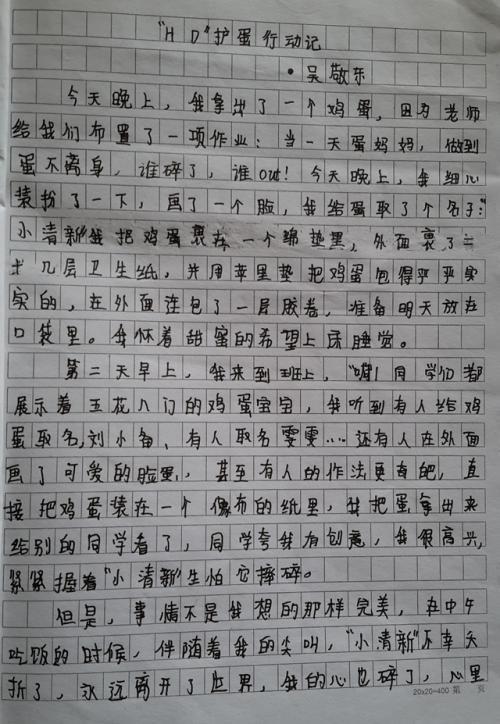 "HD"护蛋行动记
·吴敬东
今天晚上,我拿出了一个鸡蛋,因为老师
给我们布置了一项作业:当一天蛋妈妈,做到
蛋不离身,谁碎了,谁out!今天晚上,我细心
装扮了一下,画了一个脸,我给蛋取了个名子:"
小清新"我把鸡蛋裹在一个绵垫里,外面裹了二
十几层卫生纸,并用苹里垫把鸡蛋包得严严实
实的,在外面连包了一层胶卷,准备明天放在
口袋里。我怀着甜蜜的希望上床睡觉。
第二天早上,我来到班上,"嗬!同学们都
展示着五花八门的鸡蛋宝宝,我听到有人给鸡
蛋取名,刘小备、有人取名雯雯……还有人在外面
画了可爱的脸蛋,甚至有人的作法更奇葩,直
接把鸡蛋装在一个像布的纸里,我把蛋拿出来
给别的同学看了,同学夸我有创意,我很高兴,
紧紧握着"小清新"生怕它摔碎。
但是,事情不是我想的那样完美,在中午
吃饭的时候,伴随着我的尖叫,"小清新"不幸夭
折了,永远离开了世界,我的心也碎了,心里
20x20=400 第 页